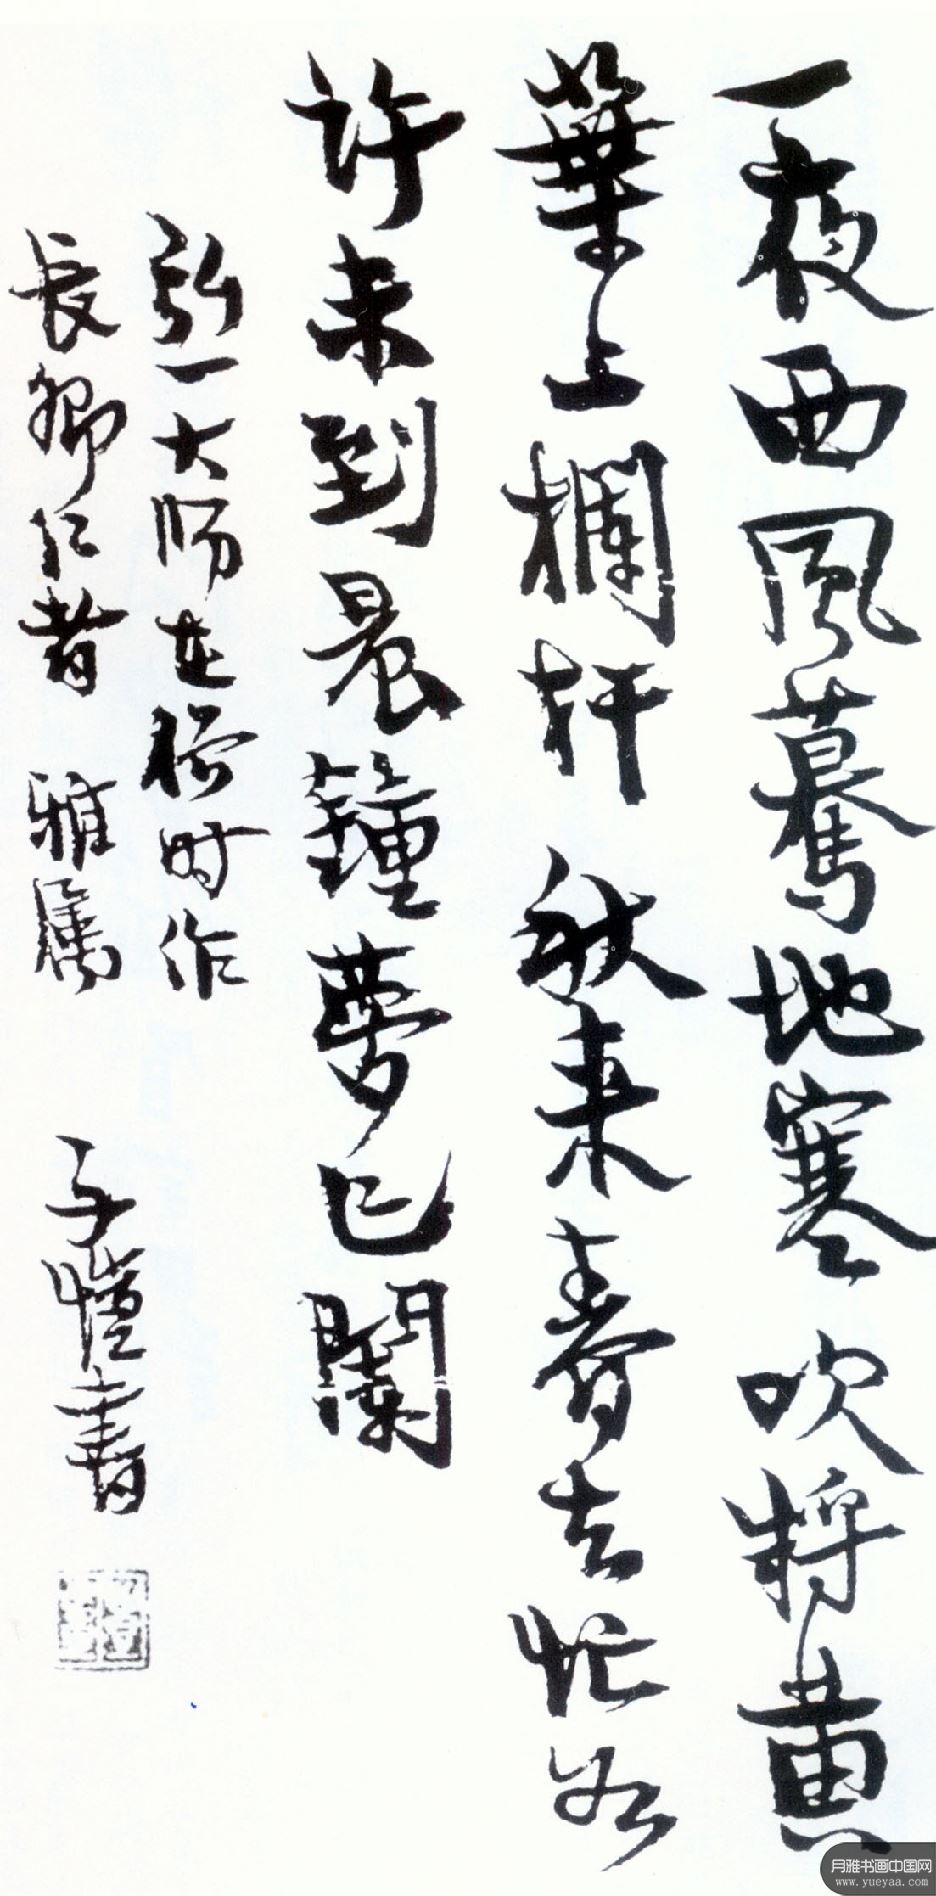 一夜西風驀地寒吹將黃
葉上欄杆秋来春去忙如
許未到晨鐘夢已闌
弘一大师在俗时作
長卿仁者 雅屬 子愷書
月雅书画中国网
www.yueyaa.com